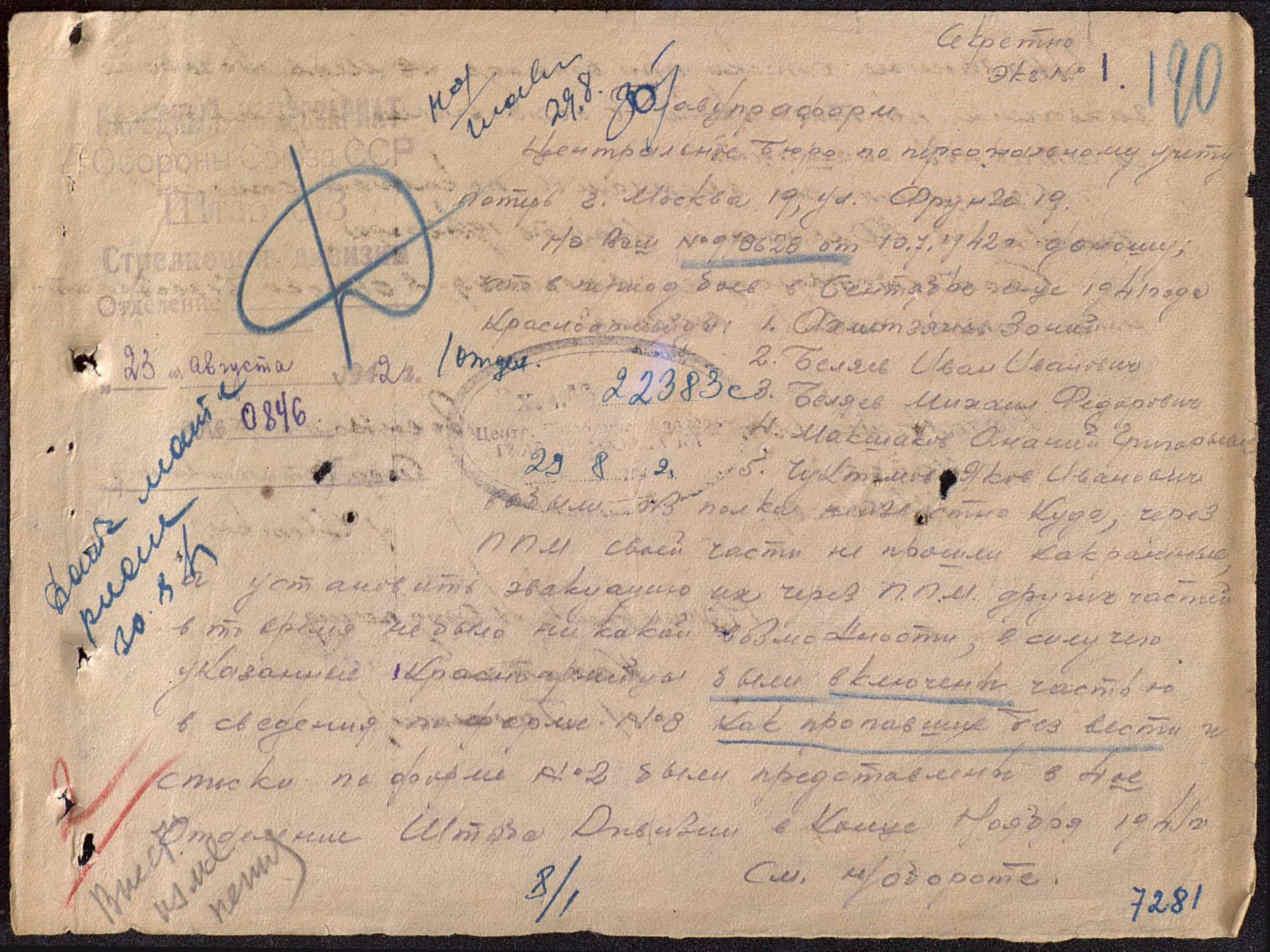 Секретно
Экз № 1.
190
29.8.
Главупраформ
НАРОДНЫЙ КОМИССАРИАТ
Обороны Союза ССР
Стрелковой дивизии
Отделение
"23" августа 1942 г.
№ 0846
Центральное бюро по персональному учету
потерь г. Москва 19, ул. Фрунзе 19.
На Ваш № 8628 от 10.7.1942г доношу,
что в период боев в Сентябре м-це 1941 года
Красноармейцы: 1. Ахмитзянов Закий
2. Беляев Иван Иванович
22383с
3. Беляев Михаил Федорович
4. Макшаков Ананий Григорьевич
29 8 2.
5. Чувтомов Яков Иванович
выбыли из полка неизвестно куда, через
ППМ своей части не прошли как раненые,
а установить эвакуацию их через П.П.М. других частей
в то время не было никакой возможности, в силу чего
указанные Красноармейцы были включены частью
в сведения по форме №8 как пропавшие без вести и
списки по форме №2 были представлены в 4ое
Отделение Штаба Дивизии в Конце Ноября 1941г
См. н/обороте.
Внести
изме
нения
8/1
7281